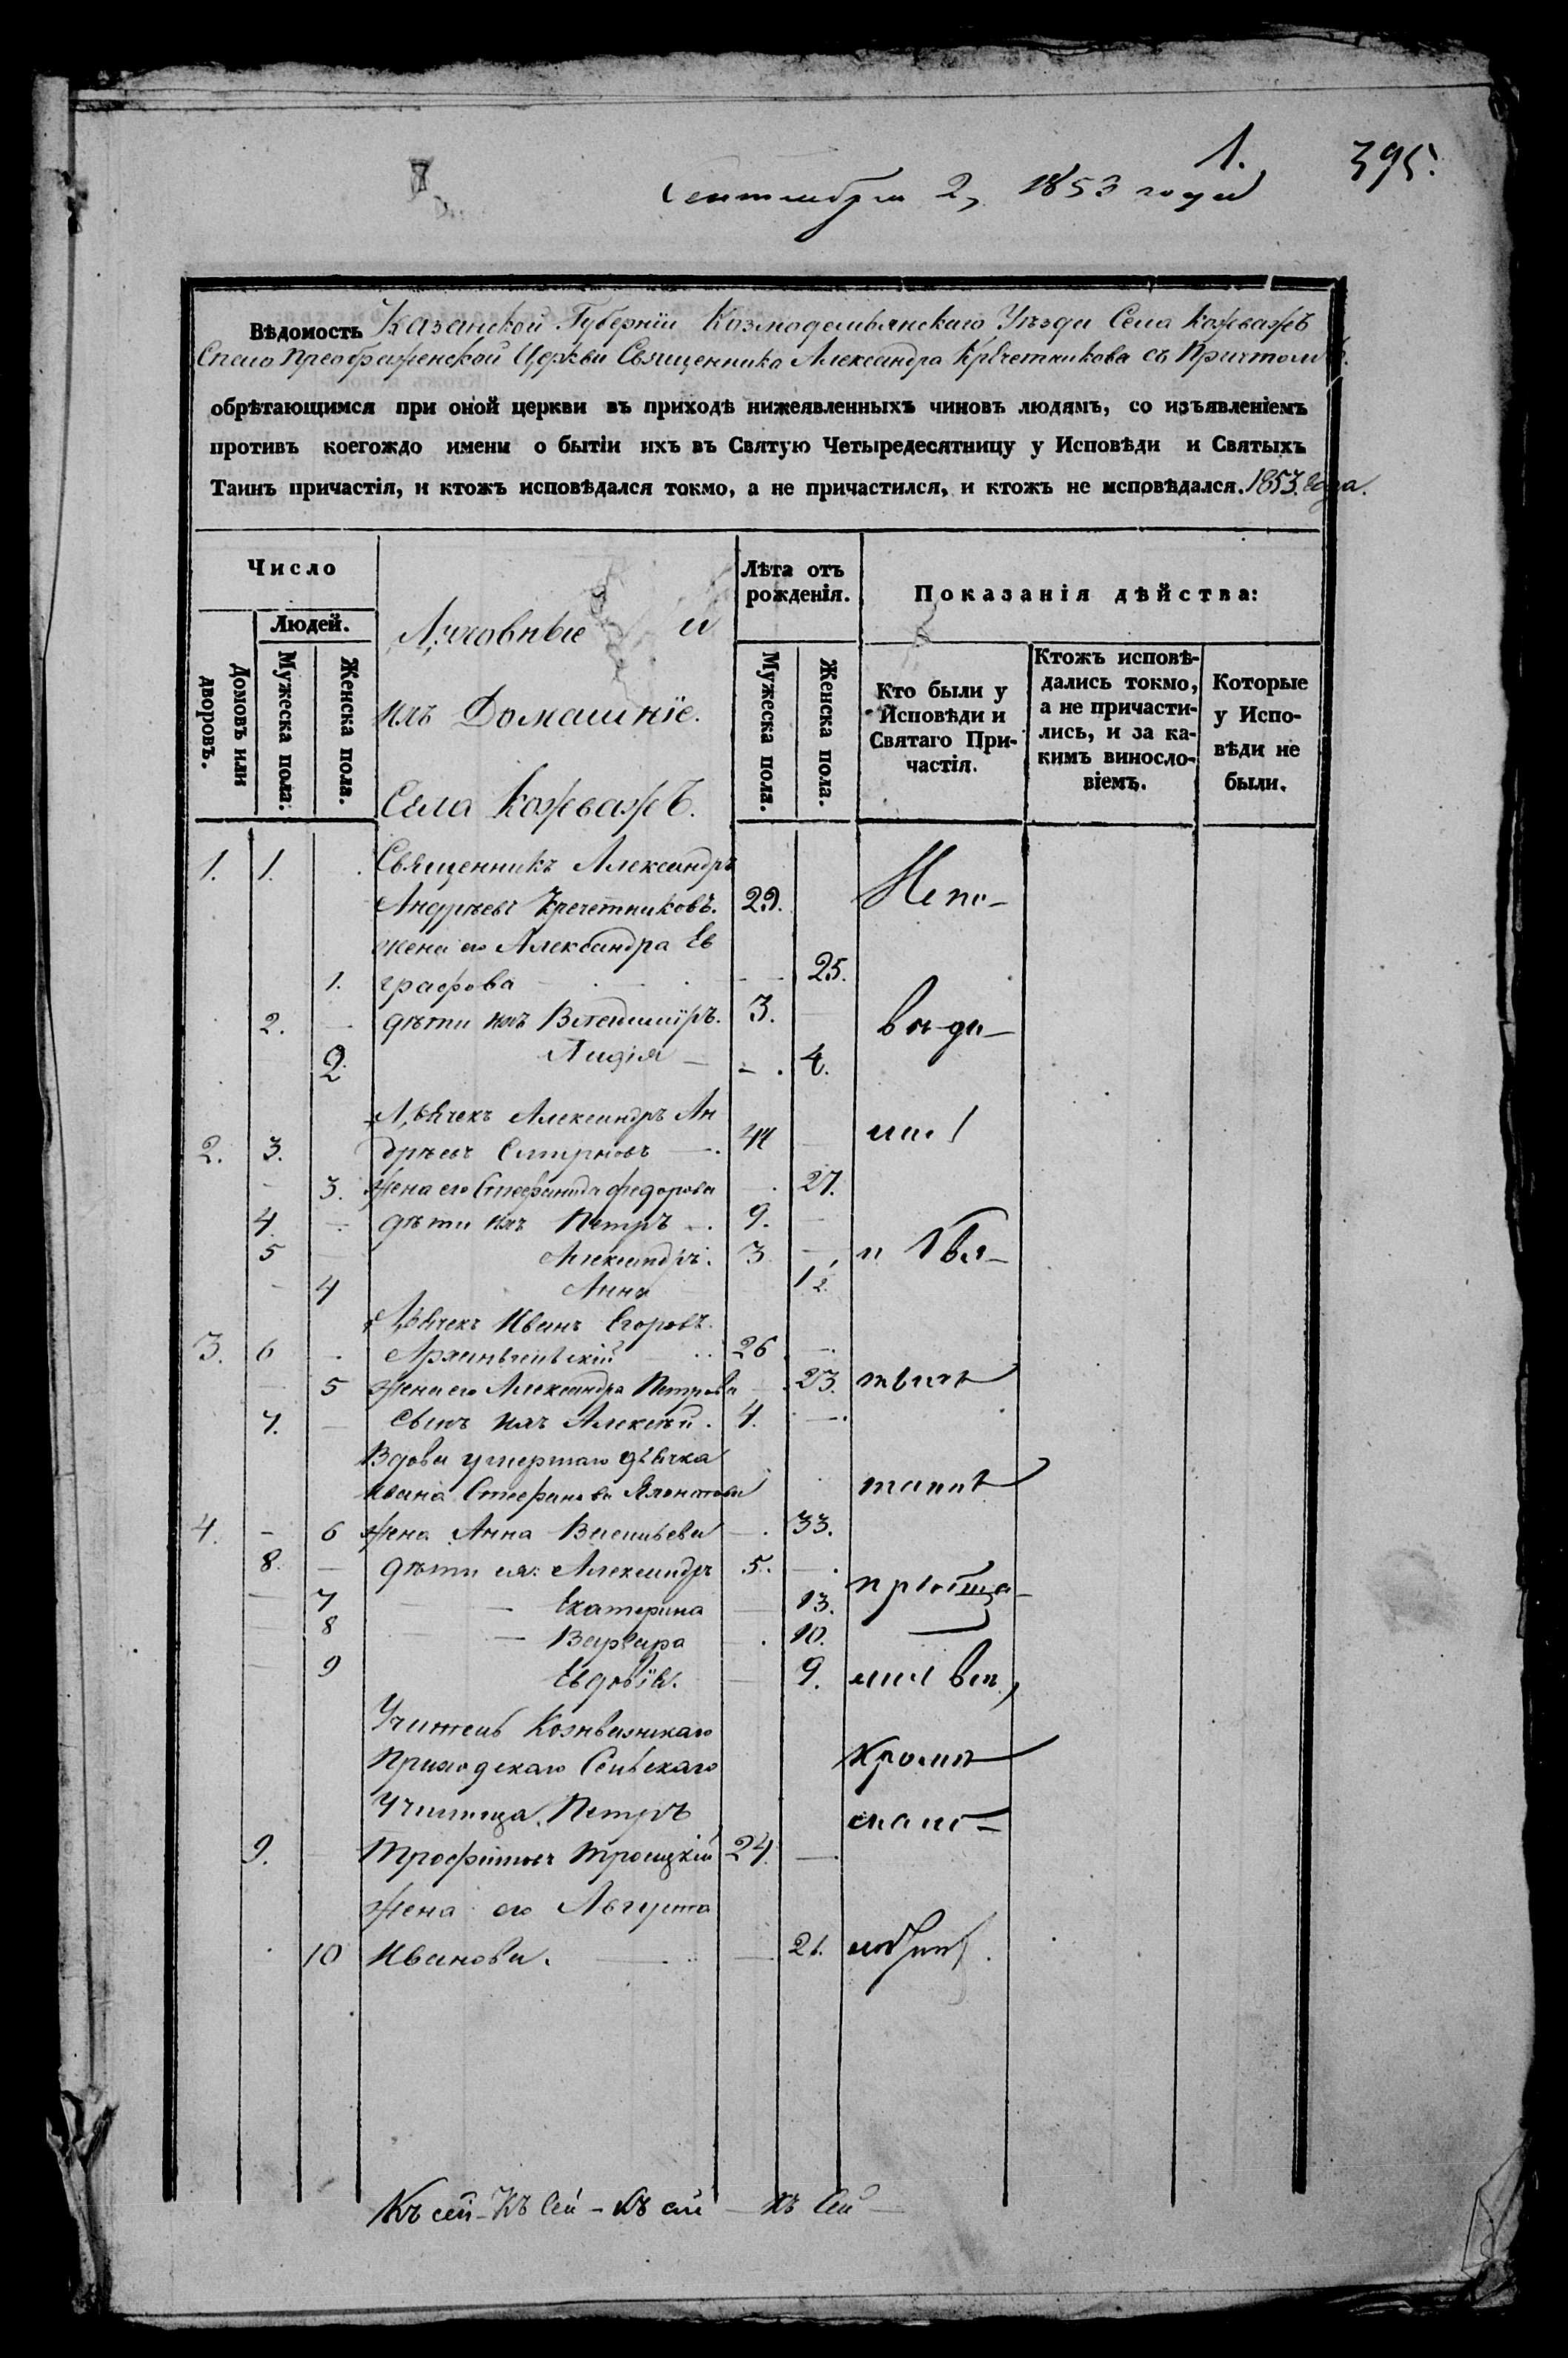 1.
395.
Сентября 2, 1853 года
Вѣдомость Казанской Губерніи Козмодемьянскаго Уѣзда Села Кожважъ
Спасо Преображенской Церкви Священника Александра Кречетникова съ Причтомъ
обрѣтающимся при оной церкви въ приходѣ нижеявленныхъ чиновъ людямъ, со изъявленіемъ
противъ коегождо имени о бытіи ихъ въ Святую Четыредесятницу у Исповѣди и Святыхъ
Таинъ причастія, и ктожъ исповѣдался токмо, а не причастился, и ктожъ не исповѣдался. 1853. года.
Число
Людей.
Домовъ или дворовъ.
Мужеска пола.
Женска пола.
Духовные и
ихъ Домашніе.
Села Кожважъ.
Лѣта отъ
рожденія.
Мужеска пола.
Женска пола.
Показанія дѣйства:
Кто были у
Исповѣди и
Святаго При-
частія.
Ктожъ исповѣ-
дались токмо,
а не причасти-
лись, и за ка-
кимъ виносло-
віемъ.
Которые
у Испо-
вѣди не
были.
1. 1. Священникъ Александръ
Андреевъ Кречетниковъ. 29. Испо-
жена его Александра Ев
1. графова 25.
2. дѣти ихъ Владиміръ. 3. вѣда-
2. Лидія 4.
Дьячекъ Александръ Ан
2. 3. дреевъ Смирновъ 44
3. жена его Стефанида Федорова 27.
4. дѣти ихъ Петръ 9.
5 Александръ. 3 и Свя-
4 Анна 1/2
Дьячекъ Иванъ Егоровъ.
3. 6 Архангельскій 26
5 жена его Александра Петрова 23. тыхъ
7. сынъ ихъ Алексѣй. 4.
Вдова умершаго дьячка
Ивана Стефанова жена
4. 6 Анна Васильева 33.
8. дѣти ея: Александръ 5.
7 Екатерина 13. пріобща-
8 Варвара 10.
9 Евдокія. 9. лись всѣ,
Учитель Кожважскаго
Приходскаго Сельскаго кромѣ
Училища Петръ мало-
9. Трофимовъ Троицкій 24.
жена его Августа
10 Иванова. 21.
Къ сей - Къ сей - Къ сей - Къ сей -